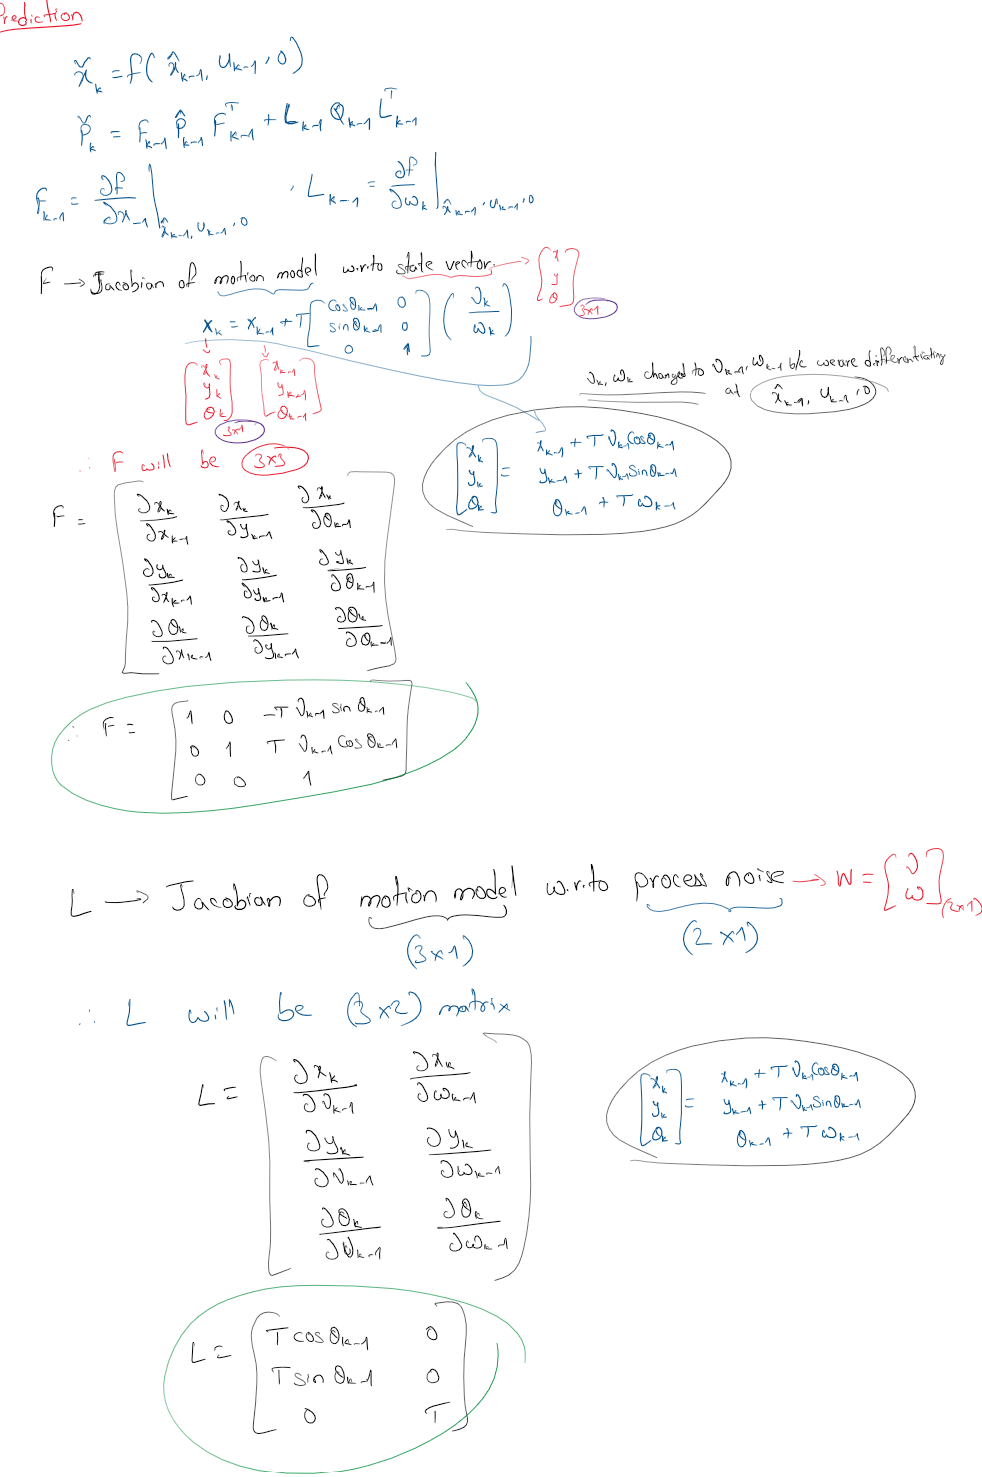 Prediction
x̌ₖ = f( x̂ₖ₋₁, uₖ₋₁, 0 )
P̌ₖ = Fₖ₋₁ P̂ₖ₋₁ Fᵀₖ₋₁ + Lₖ₋₁ Qₖ₋₁ Lᵀₖ₋₁
Fₖ₋₁ = ∂f/∂x₋₁ | x̂ₖ₋₁, uₖ₋₁, 0 , Lₖ₋₁ = ∂f/∂ωₖ | x̂ₖ₋₁, uₖ₋₁, 0
F → Jacobian of motion model w.r.to state vector → [x y θ] 3x1
xₖ = xₖ₋₁ + T [cosθₖ₋₁ 0
sinθₖ₋₁ 0
0 1] (νₖ/ωₖ)
[xₖ yₖ θₖ] 3x1 [xₖ₋₁ yₖ₋₁ θₖ₋₁]
νₖ, ωₖ changed to νₖ₋₁, ωₖ₋₁ b/c we are differentiating
at x̂ₖ₋₁, uₖ₋₁, 0
∴ F will be 3x3
[xₖ yₖ θₖ] =
xₖ₋₁ + T νₖ₋₁ cosθₖ₋₁
yₖ₋₁ + T νₖ₋₁ sinθₖ₋₁
θₖ₋₁ + T ωₖ₋₁
F = [∂xₖ/∂xₖ₋₁ ∂xₖ/∂yₖ₋₁ ∂xₖ/∂θₖ₋₁
∂yₖ/∂xₖ₋₁ ∂yₖ/∂yₖ₋₁ ∂yₖ/∂θₖ₋₁
∂θₖ/∂xₖ₋₁ ∂θₖ/∂yₖ₋₁ ∂θₖ/∂θₖ₋₁]
∴ F = [1 0 -T νₖ₋₁ sin θₖ₋₁
0 1 T νₖ₋₁ cos θₖ₋₁
0 0 1]
L → Jacobian of motion model w.r.to process noise → W = [ν ω] (2x1)
(3x1) (2x1)
∴ L will be (3x2) matrix
L = [∂xₖ/∂νₖ₋₁ ∂xₖ/∂ωₖ₋₁
∂yₖ/∂νₖ₋₁ ∂yₖ/∂ωₖ₋₁
∂θₖ/∂νₖ₋₁ ∂θₖ/∂ωₖ₋₁]
[xₖ yₖ θₖ] =
xₖ₋₁ + T νₖ₋₁ cosθₖ₋₁
yₖ₋₁ + T νₖ₋₁ sinθₖ₋₁
θₖ₋₁ + T ωₖ₋₁
L = [T cos θₖ₋₁ 0
T sin θₖ₋₁ 0
0 T]